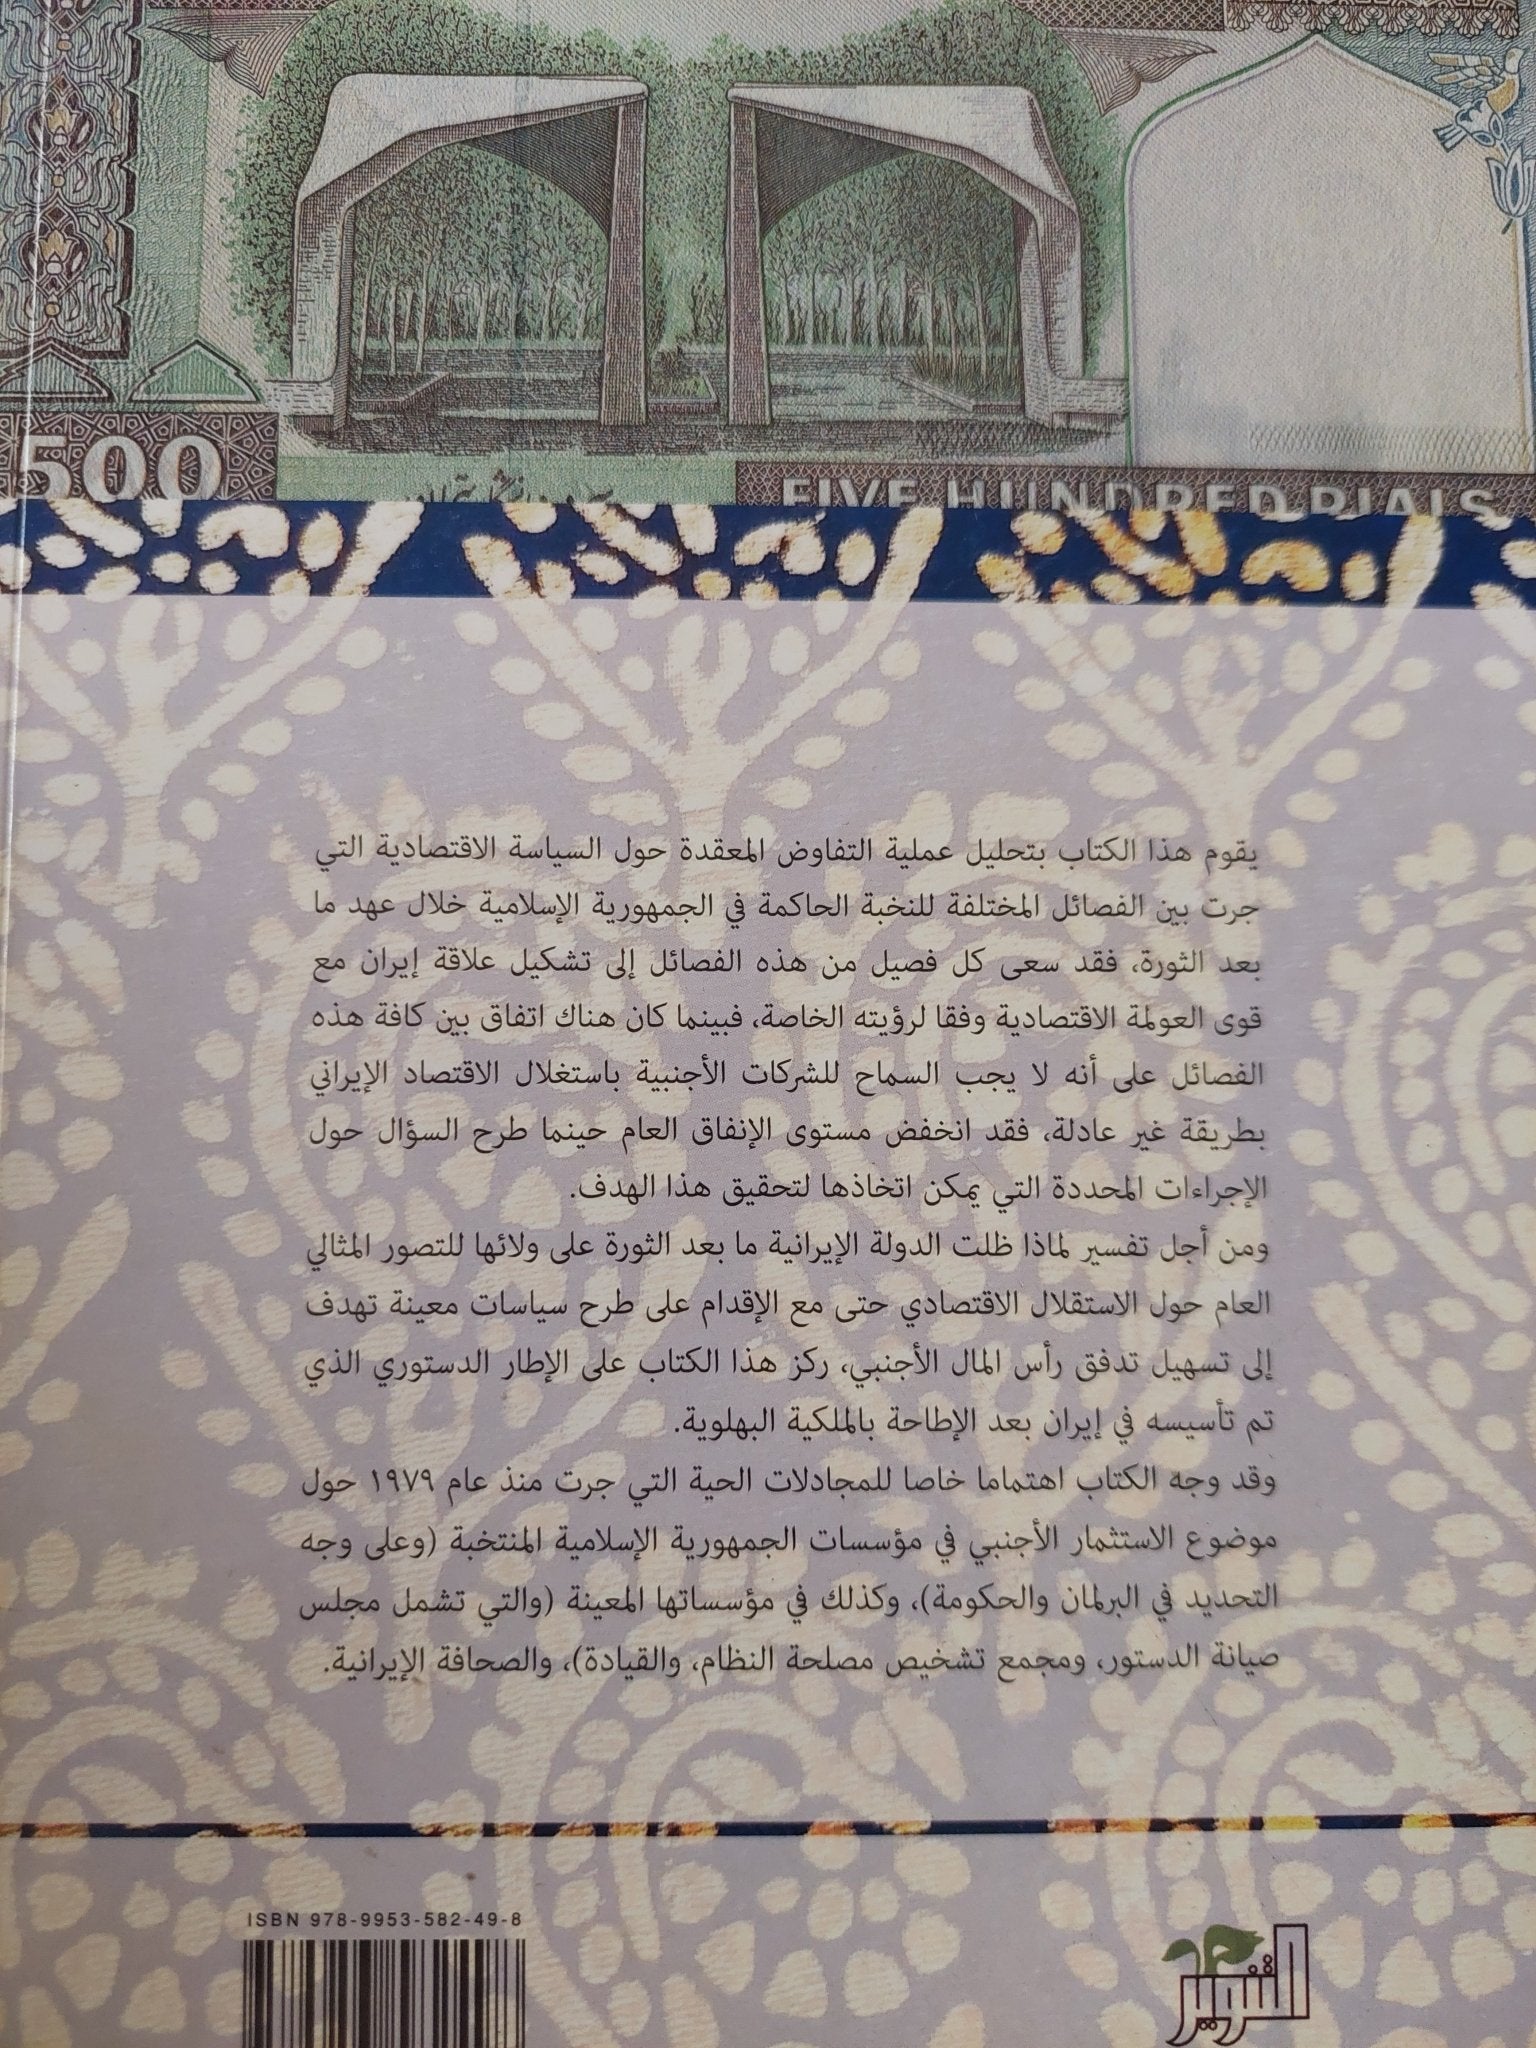 500
FIVE HUNDRED RIALS
يقوم هذا الكتاب بتحليل عملية التفاوض المعقدة حول السياسة الاقتصادية التي
جرت بين الفصائل المختلفة للنخبة الحاكمة في الجمهورية الإسلامية خلال عهد ما
بعد الثورة، فقد سعى كل فصيل من هذه الفصائل إلى تشكيل علاقة إيران مع
قوى العولمة الاقتصادية وفقا لرؤيته الخاصة، فبينما كان هناك اتفاق بين كافة هذه
الفصائل على أنه لا يجب السماح للشركات الأجنبية باستغلال الاقتصاد الإيراني
بطريقة غير عادلة، فقد انخفض مستوى الإنفاق العام حينما طرح السؤال حول
الإجراءات المحددة التي يمكن اتخاذها لتحقيق هذا الهدف.
ومن أجل تفسير لماذا ظلت الدولة الإيرانية ما بعد الثورة على ولائها للتصور المثالي
العام حول الاستقلال الاقتصادي حتى مع الإقدام على طرح سياسات معينة تهدف
إلى تسهيل تدفق رأس المال الأجنبي، ركز هذا الكتاب على الإطار الدستوري الذي
تم تأسيسه في إيران بعد الإطاحة بالملكية البهلوية.
وقد وجه الكتاب اهتماما خاصا للمجادلات الحية التي جرت منذ عام ١٩٧٩ حول
موضوع الاستثمار الأجنبي في مؤسسات الجمهورية الإسلامية المنتخبة (وعلى وجه
التحديد في البرلمان والحكومة)، وكذلك في مؤسساتها المعينة (والتي تشمل مجلس
صيانة الدستور، ومجمع تشخيص مصلحة النظام، والقيادة)، والصحافة الإيرانية.
ISBN 978-9953-582-49-8
التنوير